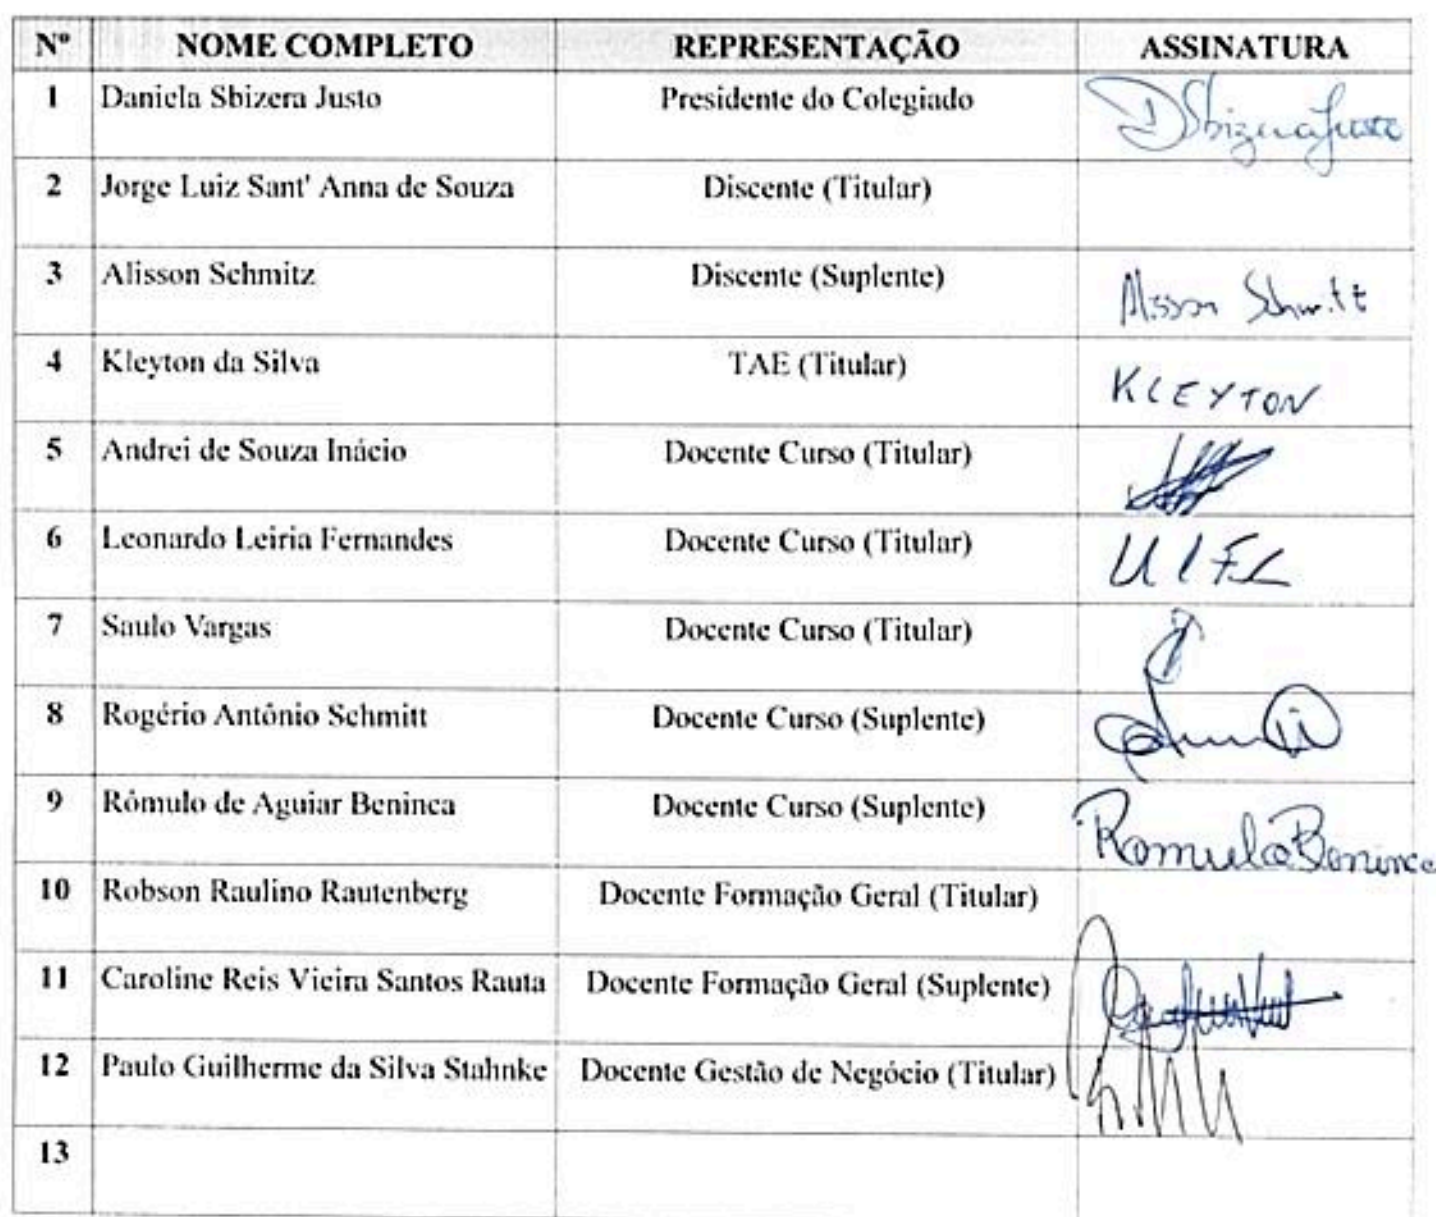 Nº NOME COMPLETO REPRESENTAÇÃO ASSINATURA
1 Daniela Sbizera Justo Presidente do Colegiado DSbizeraJusto
2 Jorge Luiz Sant' Anna de Souza Discente (Titular)
3 Alisson Schmitz Discente (Suplente) Alisson Schmitz
4 Kleyton da Silva TAE (Titular) KLEYTON
5 Andrei de Souza Inácio Docente Curso (Titular)
6 Leonardo Leiria Fernandes Docente Curso (Titular)
7 Saulo Vargas Docente Curso (Titular)
8 Rogério Antônio Schmitt Docente Curso (Suplente)
9 Rômulo de Aguiar Beninca Docente Curso (Suplente) Romulo Beninca
10 Robson Raulino Rautenberg Docente Formação Geral (Titular)
11 Caroline Reis Vieira Santos Rauta Docente Formação Geral (Suplente)
12 Paulo Guilherme da Silva Stahnke Docente Gestão de Negócio (Titular)
13